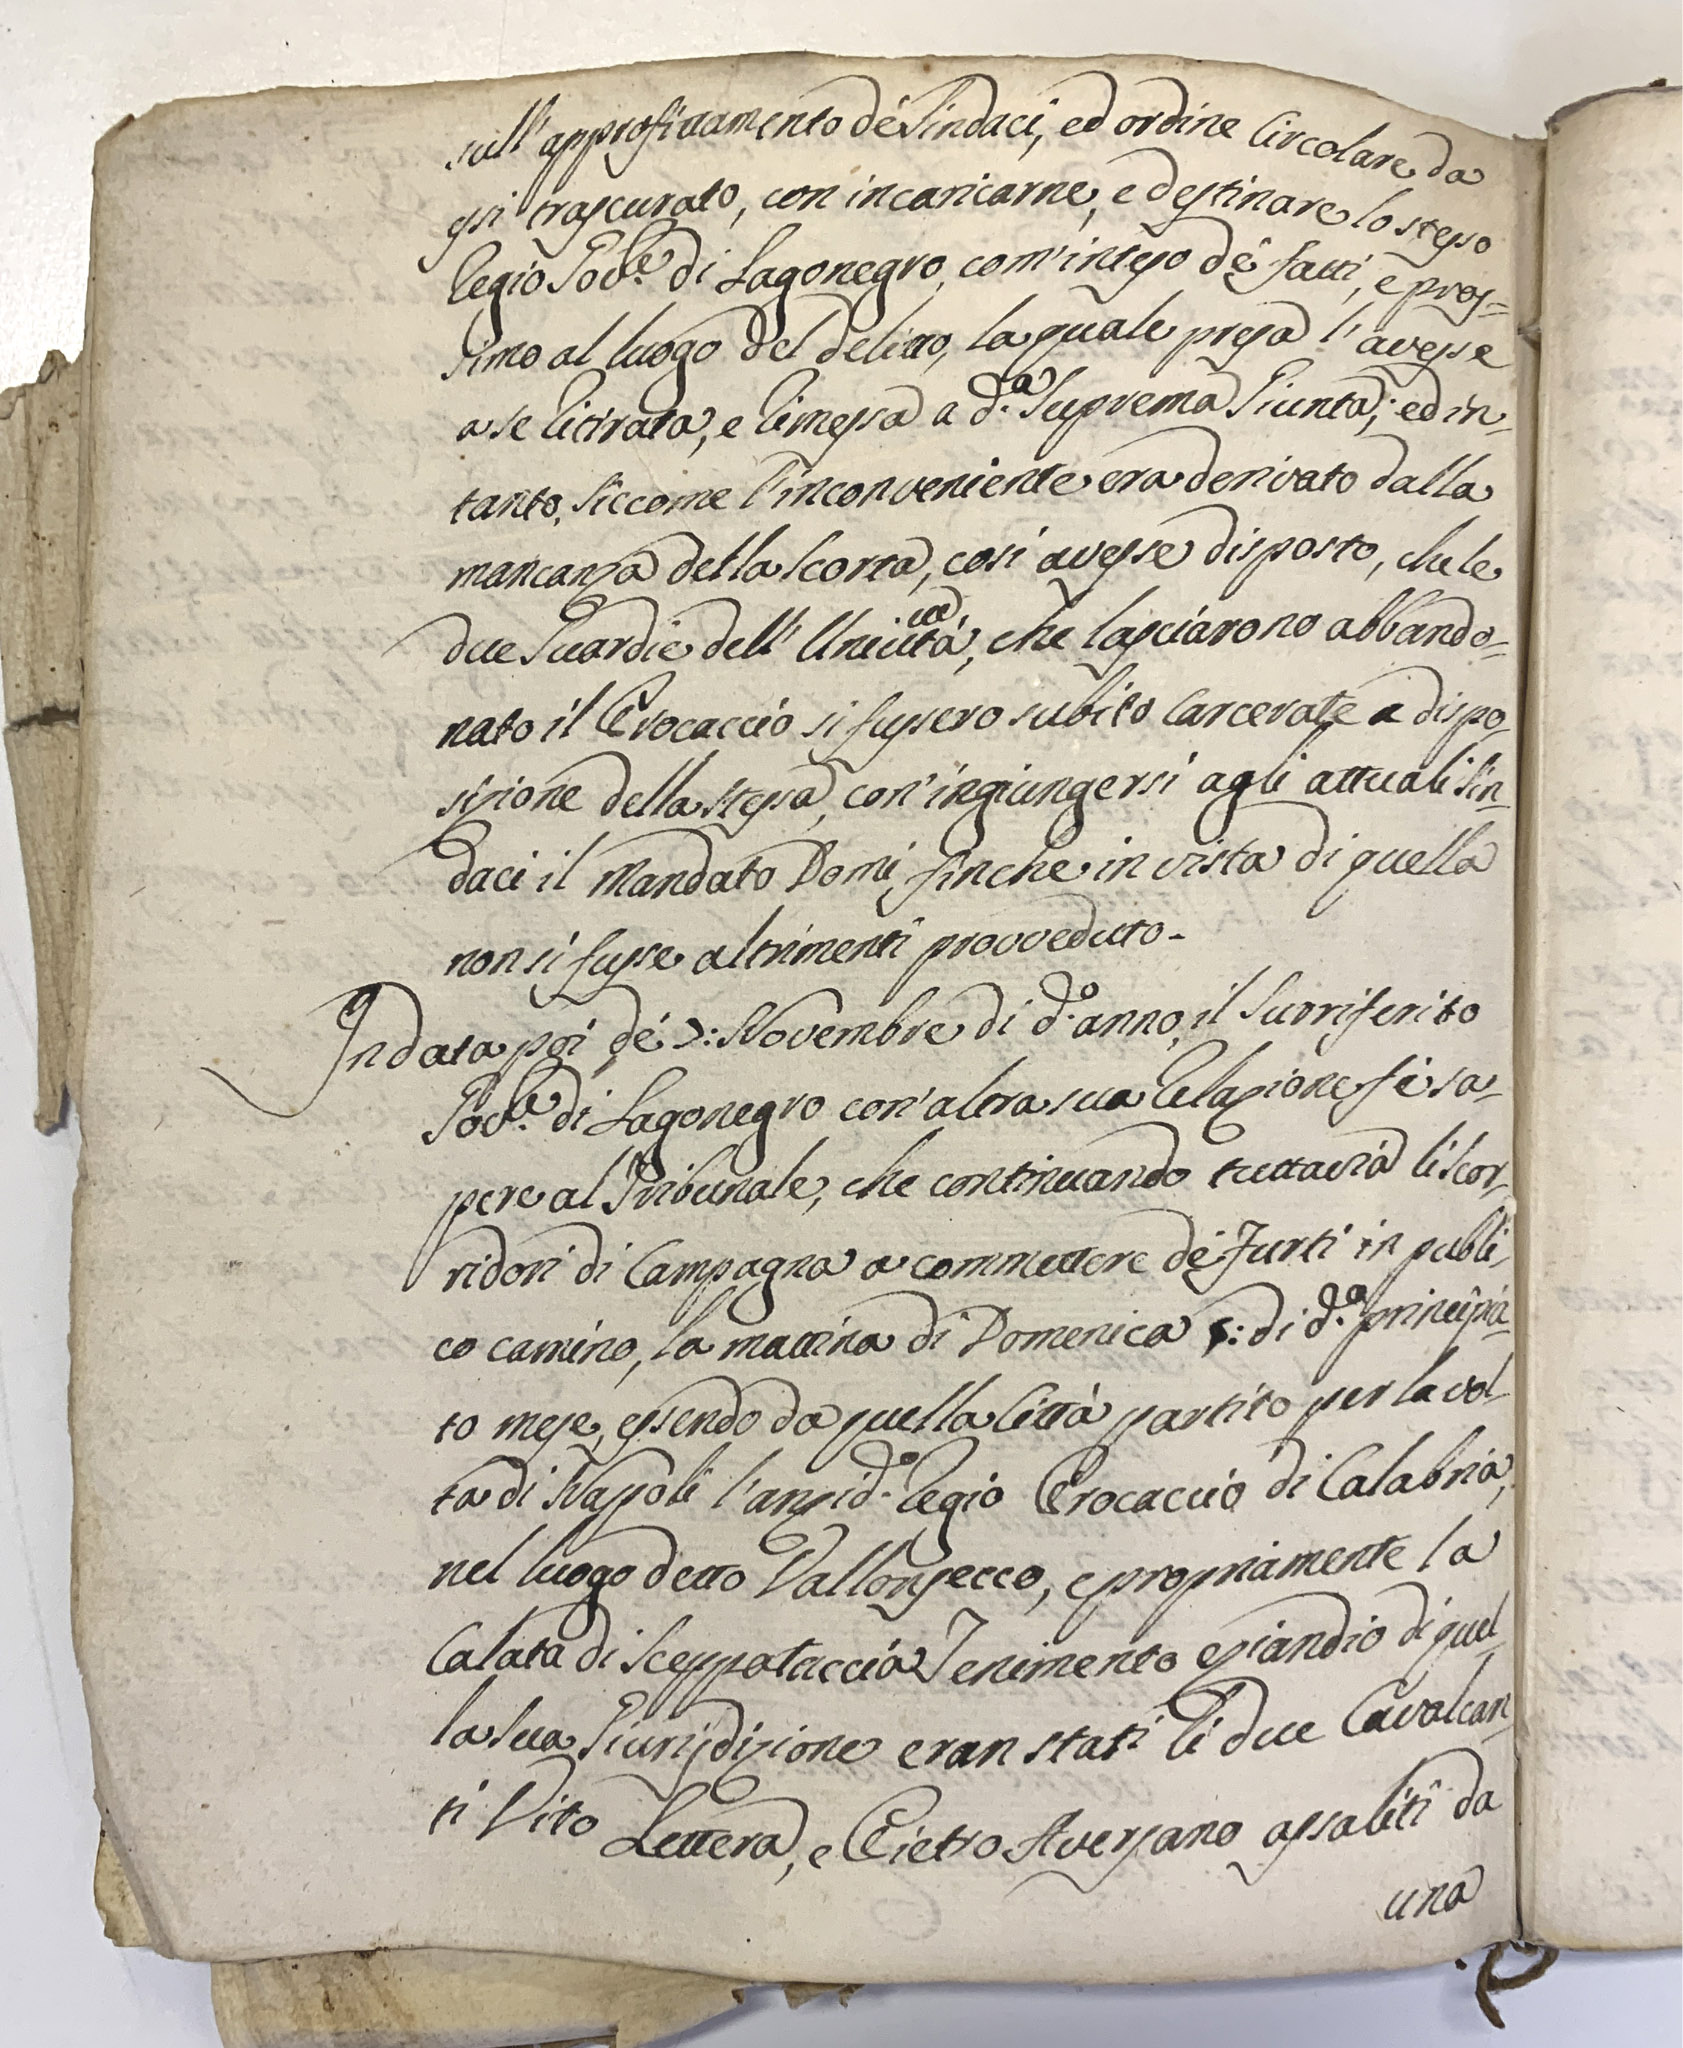 sull'approfittamento de' Sindaci, ed ordine Circolare da
essi trascurato, con incaricarne, e destinare lo stesso
Regio Gov.re di Lagonegro, com'inteso de' fatti, e pros=
simo al luogo del delitto, la quale presa l'avesse
a se ritirata, e rimessa a d.a Suprema Giunta; ed in-
tanto, siccome l'inconveniente era derivato dalla
mancanza della scorta, così avesse disposto, che le
due Guardie dell'Univ.tà, che lasciarono abbando=
nato il Procaccio si fussero subito carcerate a dispo-
sizione della stessa, con'ingiungersi agli attuali Sin-
daci il Mandato Domi, finche in vista di quella
non si fusse altrimenti provveduto-
In data poi de' 7: Novembre di d.o anno, il surriferito
Gov.re di Lagonegro con'altra sua Relazione fè sa-
pere al Tribunale, che continuando tuttavia li scor-
ridori di Campagna a commettere de' Furti in publi-
co camino, la mattina di Domenica 5: di d.o principia-
to mese, essendo da quella Città partito per la vol-
ta di Napoli l'anzid.o Regio Procaccio di Calabria,
nel luogo detto Vallonsecco, e propriamente la
Calata di Sceppataccia Tenimento eziandio di quel-
la sua Giurisdizione eran stati li due Cavalcan-
ti Vito Lettera, e Pietro Aversano assaliti da
una